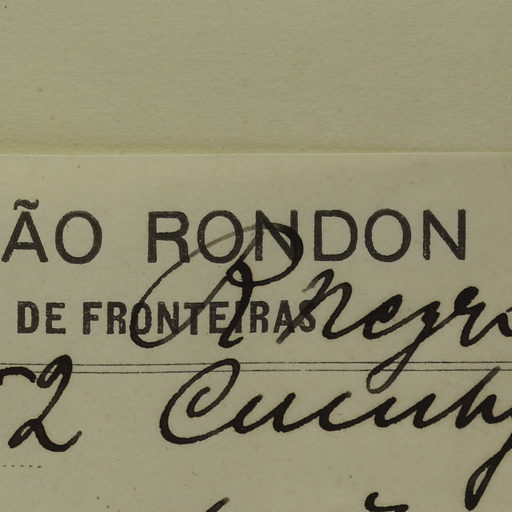 ÃO RONDON
DE FRONTEIRAS
R. Negro
52 Cucuhy